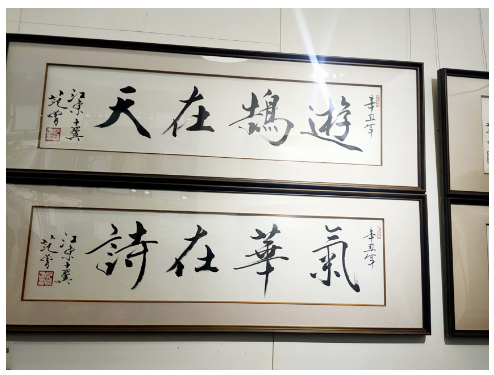 辛丑年
遊鵠在天
江東十翼
范曾
辛丑年
氣華在詩
江東十翼
范曾